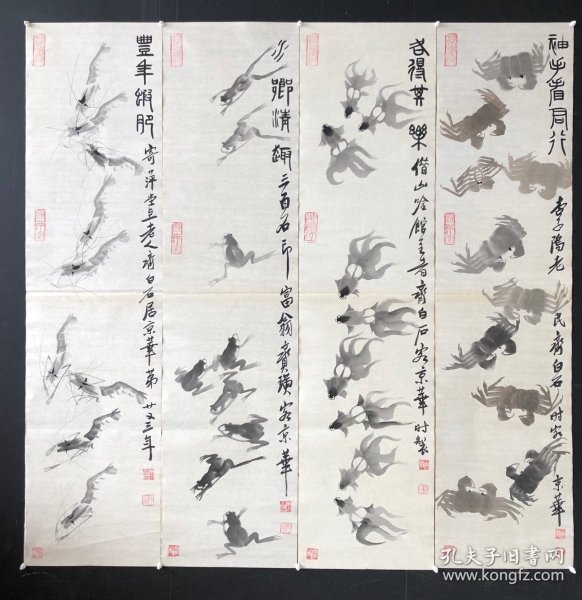 袖手看君行
杏子隖老民齊白石时客京華
各得其樂
借山唫館主者齊白石客京華时製
水鄉清趣
三百石印富翁齊璜客京華
豐年蝦肥
寄萍堂上老人齊白石居京華第廿又三年
孔夫子旧书网
www.kongfz.com